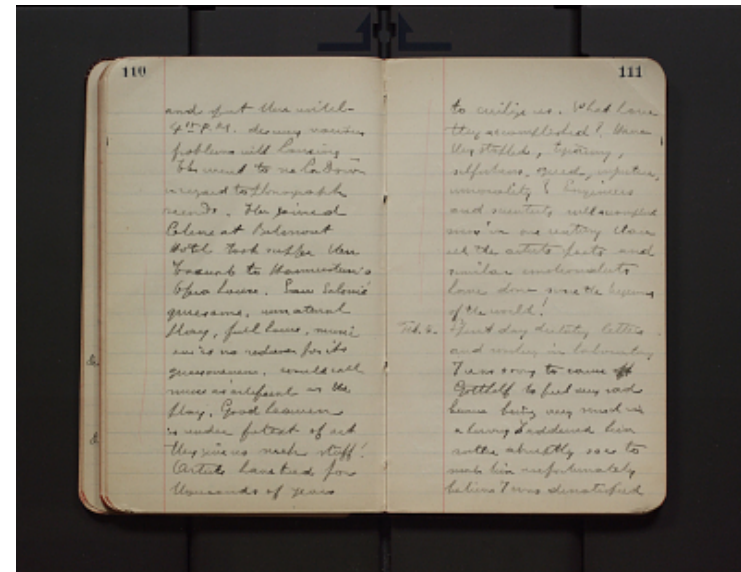 110
and put then until
4 P.M. discussing various
problems with Lansing
He went to
in regard to Phonograph
records. Then joined
Celine at Belmont
Hotel took supper then
to Hammerstein's
Opera house. Saw Salomé
gruesome, unnatural
play, full house, music
is no redeemer for its
gruesomeness, would call
music as artificial as the
play. Good heavens
is under pretext of art
they give us such stuff!
Artists have tried for
thousands of years
111
to civilize us. What have
they accomplished? Have
they stalled, tyranny,
selfishness, greed, injustice,
immorality? Engineers
and scientists will accomplish
more in one century than
all the artists poets and
similar emotionalists
have done since the beginning
of the world!
Feb. 6. Spent day dictating letters
and working in laboratory
I was sorry to cause
Gotthelf to feel very sad
because being very much in
a hurry I addressed him
rather abruptly so as to
make him unfortunately
believe I was dissatisfied